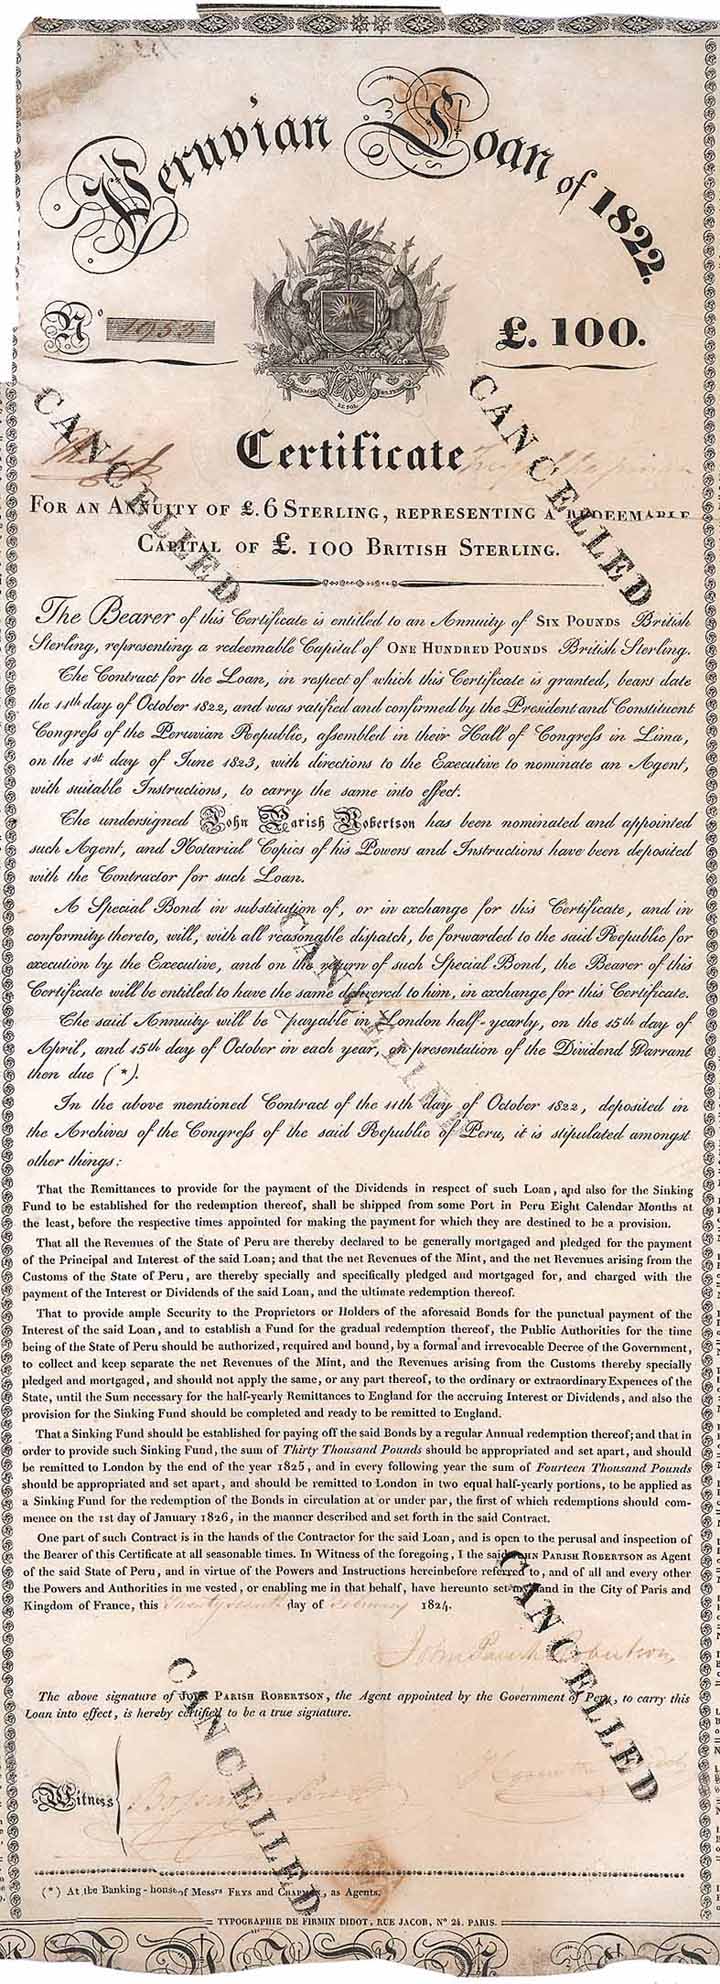 Peruvian Loan of 1822.
No 1053
£. 100.
CANCELLED
CANCELLED
Certificate
FOR AN ANNUITY OF £. 6 STERLING, REPRESENTING A REDEEMABLE
CAPITAL OF £. 100 BRITISH STERLING.
The Bearer of this Certificate is entitled to an Annuity of SIX POUNDS British
Sterling, representing a redeemable Capital of ONE HUNDRED POUNDS British Sterling.
The Contract for the Loan, in respect of which this Certificate is granted, bears date
the 11th day of October 1822, and was ratified and confirmed by the President and Constituent
Congress of the Peruvian Republic, assembled in their Hall of Congress in Lima,
on the 1st day of June 1823, with directions to the Executive to nominate an Agent,
with suitable Instructions, to carry the same into effect.
The undersigned John Parish Robertson has been nominated and appointed
such Agent, and Notarial Copies of his Powers and Instructions have been deposited
with the Contractor for such Loan.
A Special Bond in substitution of, or in exchange for this Certificate, and in
conformity thereto, will, with all reasonable dispatch, be forwarded to the said Republic for
execution by the Executive, and on the return of such Special Bond, the Bearer of this
Certificate will be entitled to have the same delivered to him, in exchange for this Certificate.
CANCELLED
The said Annuity will be payable in London half-yearly, on the 15th day of
April, and 15th day of October in each year, on presentation of the Dividend Warrant
then due (*).
In the above mentioned Contract of the 11th day of October 1822, deposited in
the Archives of the Congress of the said Republic of Peru, it is stipulated amongst
other things:
That the Remittances to provide for the payment of the Dividends in respect of such Loan, and also for the Sinking
Fund to be established for the redemption thereof, shall be shipped from some Port in Peru Eight Calendar Months at
the least, before the respective times appointed for making the payment for which they are destined to be a provision.
That all the Revenues of the State of Peru are thereby declared to be generally mortgaged and pledged for the payment
of the Principal and Interest of the said Loan; and that the net Revenues of the Mint, and the net Revenues arising from the
Customs of the State of Peru, are thereby specially and specifically pledged and mortgaged for, and charged with the
payment of the Interest or Dividends of the said Loan, and the ultimate redemption thereof.
That to provide ample Security to the Proprietors or Holders of the aforesaid Bonds for the punctual payment of the
Interest of the said Loan, and to establish a Fund for the gradual redemption thereof, the Public Authorities for the time
being of the State of Peru should be authorized, required and bound, by a formal and irrevocable Decree of the Government,
to collect and keep separate the net Revenues of the Mint, and the Revenues arising from the Customs thereby specially
pledged and mortgaged, and should not apply the same, or any part thereof, to the ordinary or extraordinary Expences of the
State, until the Sum necessary for the half-yearly Remittances to England for the accruing Interest or Dividends, and also the
provision for the Sinking Fund should be completed and ready to be remitted to England.
That a Sinking Fund should be established for paying off the said Bonds by a regular Annual redemption thereof; and that in
order to provide such Sinking Fund, the sum of Thirty Thousand Pounds should be appropriated and set apart, and should
be remitted to London by the end of the year 1825, and in every following year the sum of Fourteen Thousand Pounds
should be appropriated and set apart, and should be remitted to London in two equal half-yearly portions, to be applied as
a Sinking Fund for the redemption of the Bonds in circulation at or under par, the first of which redemptions should com-
mence on the 1st day of January 1826, in the manner described and set forth in the said Contract.
One part of such Contract is in the hands of the Contractor for the said Loan, and is open to the perusal and inspection of
the Bearer of this Certificate at all seasonable times. In Witness of the foregoing, I the said JOHN PARISH ROBERTSON as Agent
of the said State of Peru, and in virtue of the Powers and Instructions hereinbefore referred to, and of all and every other
the Powers and Authorities in me vested, or enabling me in that behalf, have hereunto set my hand in the City of Paris and
Kingdom of France, this Twenty seventh day of February 1824.
CANCELLED
John Parish Robertson
The above signature of JOHN PARISH ROBERTSON, the Agent appointed by the Government of Peru, to carry this
Loan into effect, is hereby certified to be a true signature.
CANCELLED
Witness
(*) At the Banking-house of Messrs FRYS and CHAPMAN, as Agents.
TYPOGRAPHIE DE FIRMIN DIDOT, RUE JACOB, No 24. PARIS.